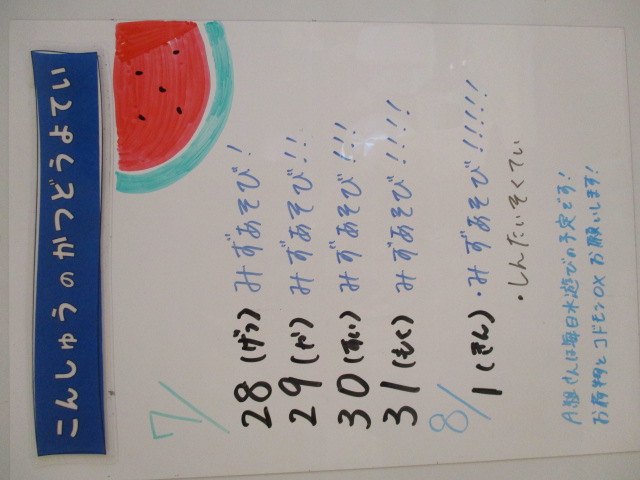 こんしゅうのかつどうよてい
7/
28(げつ) みずあそび!
29(か) みずあそび!!
30(すい) みずあそび!!!
31(もく) みずあそび!!!!
8/
1(きん)・みずあそび!!!!!
・しんたいそくてい
A組さんは毎日水遊びの予定です!
お荷物とコドモンOXお願いします!